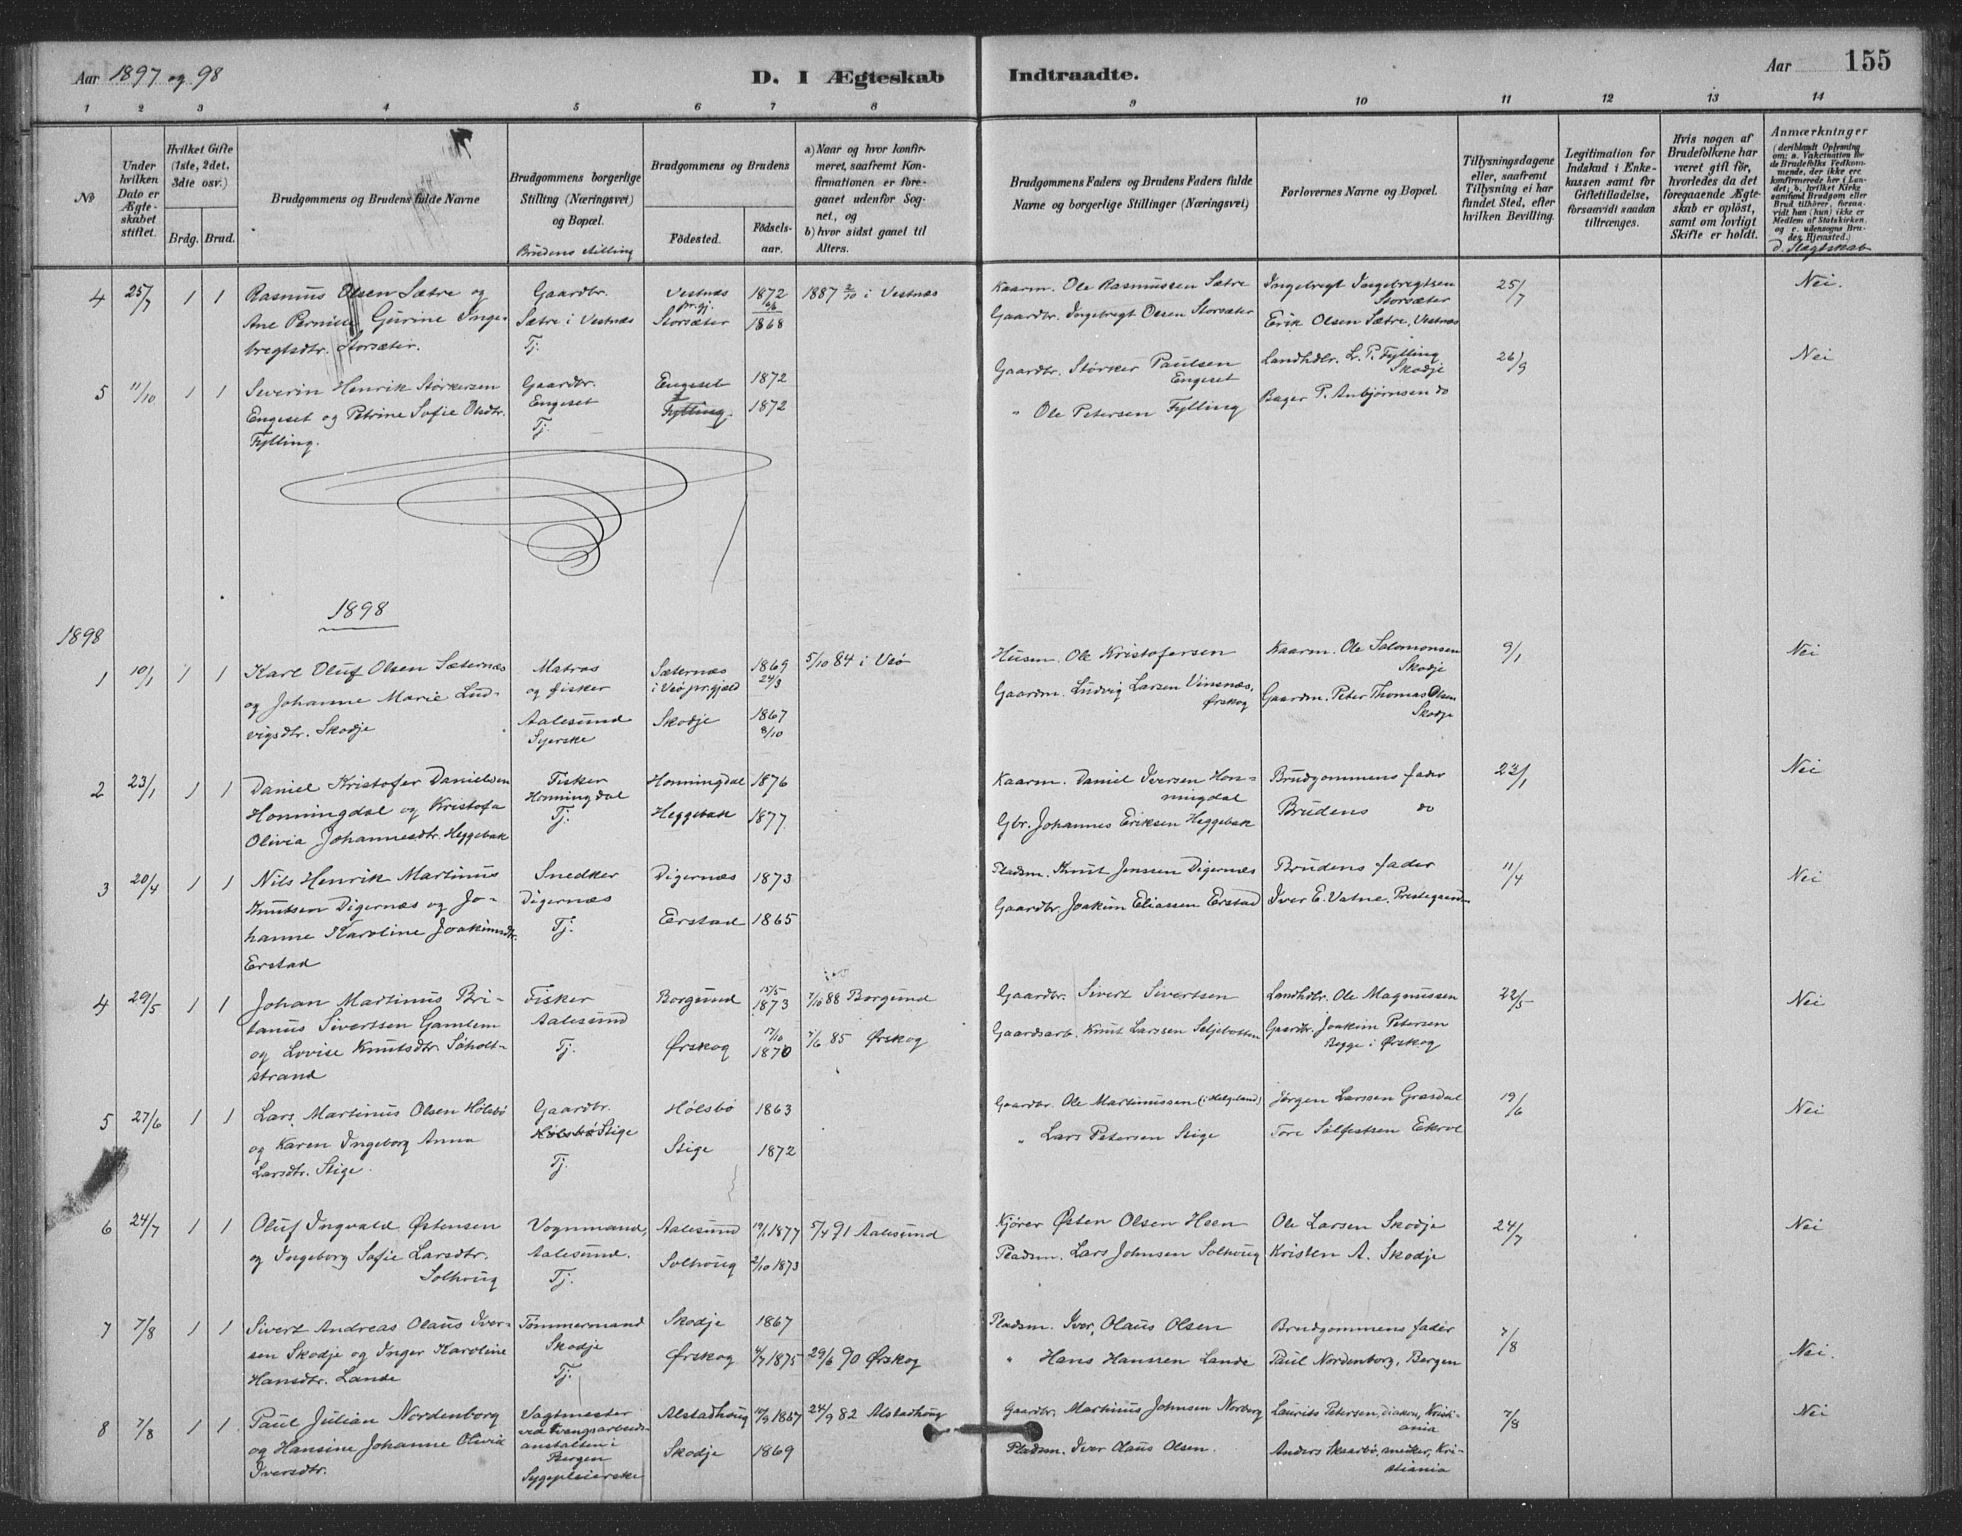 Aar 1897 og 98
D. I Ægteskab
Indtraadte.
Aar 155
1 2 3 4 5 6 7 8 9 10 11 12 13 14
No
Under hvilken Dato er Ægteskabet stiftet.
Hvilket Gifte (1ste, 2det, 3die osv.)
Brdg. Brud.
Brudgommens og Brudens fulde Navne
Brudgommens borgerlige Stilling (Næringsvei) og Bopæl.
Brudens stilling
Brudgommens og Brudens
Fødested.
Fødselsaar.
a) Naar og hvor konfirmeret, saafremt Konfirmationen er foregaaet udenfor Sognet, og
b) hvor sidst gaaet til Alters.
Brudgommens Faders og Brudens Faders fulde Navne og borgerlige Stillinger (Næringsvei)
Forlovernes Navne og Bopæl.
Tillysningsdagene eller, saafremt Tillysning ei har fundet Sted, efter hvilken Bevilling.
Legitimation for Indskud i Enkekassen samt for Giftetilladelse, forsaavidt saadan tiltrænges.
Hvis nogen af Brudefolkene har været gift før, hvorledes da det foregaaende Ægteskab er opløst, samt om lovligt Skifte er holdt.
Anmærkninger (deriblandt Oplysning om: a. Vakcination for de Brudefolks Vedkommende, der ikke ere konfirmerede her i Landet; b. hvilket Kirkesamfund Brudgom eller Brud tilhører, forsaavidt han (hun) ikke er Medlem af Statskirken, og c. udensogns Brudes Hjemsted.)
d. Slægtskab
4 25/7 1 1 Rasmus Olsen Sætre og Gaardbr. Vestnæs 1872 1887 2/10 i Vestnæs Kaarm. Ole Rasmussen Sætre Ingebregt Ingebregtsen 25/7 Nei.
Ane Pernille Gurine Inge- Sætre i Vestnæs pr.gj. Storsæter 1868 Gaardbr. Ingebregt Olsen Storsæter Storsæter
bregtsdtr. Storsæter. Tj. Erik Olsen Sætre, Vestnæs
5 11/10 1 1 Severin Henrik Størkersen Gaardbr. Engeset 1872 Gaardbr. Størker Paulsen Engeset Landhdlr. L. P. Fylling Skodje 26/9 Nei
Engeset og Petrine Sofie Olsdtr. Engeset Fylling. 1872 " Ole Petersen Fylling Bager P. Anbjørnsen do
Fylling. Tj.
1898
1898
1 10/1 1 1 Karl Oluf Olsen Sæternæs Matros Sæternæs 1869 5/10 84 i Veø Husm. Ole Kristofersen Kaarm. Ole Salomonsen Skodje 9/1 Nei
og Johanne Marie Lud- og fisker i Veø pr.gjeld 24/3 Gaardm. Ludvig Larsen Vinsnæs, Ørskog Gaardm. Peter Thomas Olsen Skodje
vigsdtr. Skodje Aalesund Skodje 1867
Syerske 8/10
2 23/1 1 1 Daniel Kristofer Danielsen Fisker Honningdal 1876 Kaarm. Daniel Iversen Hon- Brudgommens fader 23/1 Nei
Honningdal og Kristofa Honningdal Heggebak 1877. ningdal Brudens do
Olivia Johannesdtr. Heggebak Tj. Gbr. Johannes Eriksen Heggebak
3 20/4 1 1 Nils Henrik Martinus Snedker Digernæs 1873 Pladsm. Knut Jenssen Digernæs Brudens fader 11/4 Nei
Knutsen Digernæs og Jo- Digernæs Erstad 1865 Gaardbr. Joakim Eliassen Erstad Iver E. Vatne. Prestegaarden
hanne Karoline Joakimsdtr. Tj.
Erstad
4 29/5 1 1 Johan Martinus Bri- Fisker Borgund 15/5 1873 7/10 88 Borgund Gaardbr. Sivert Sivertsen Landhdlr. Ole Magnussen 22/5 Nei
tanus Sivertssen Gamlem Aalesund Ørskog 17/10 1870 7/6 85 Ørskog Gaardsarb. Knut Larssen Seljebotten Gaardbr. Joakim Petersen
og Lovise Knutsdtr. Søholt- Tj. Begge i Ørskog
strand
5 27/6 1 1 Lars Martinus Olsen Hølsbø Gaardbr. Hølsbø 1863 Gaardbr. Ole Martinussen (i Helgeland) Jørgen Larssen Græsdal 19/6 Nei
og Karen Ingeborg Anna Hølsbø Stige Stige 1872 " Lars Petersen Stige Tore Solfestsen Ekrol
Larsdtr. Stige. Tj.
6 24/7 1 1 Oluf Ingvald Østensen Vognmand, Aalesund 19/1 1877 5/4 91 Aalesund Kjører Østen Olsen Heen Ole Larsen Skodje 24/7 Nei
og Ingeborg Sofie Larsdtr. Aalesund. Solhoug 2/10 1873 Pladsm. Lars Johnsen Solhoug Kristen A. Skodje
Solhoug Tj.
7 7/8 1 1 Sivert Andreas Olaus Iver- Tømmermand Skodje 1867 Pladsm. Iver Olaus Olsen Brudgommens fader 7/8
sen Skodje og Inger Karoline Skodje Ørskog 4/7 1875 29/6 90 Ørskog " Hans Hanssen Lande Paul Nordenborg, Bergen Nei.
Hansdtr. Lande Tj.
8 7/8 1 1 Paul Julian Nordenborg Vagtmester Alstadhoug 10/9 1857 24/9 82 Alstadhoug Gaardbr. Martinus Johnsen Norberg Laurits Petersen, diakon, Kristi- 7/8 Nei
og Hansine Johanne Olivia ved tvangsarbeids- ania
Iversdtr. anstalten i Bergen Skodje 1869 Pladsm. Iver Olaus Olsen. Anders Skaarbø, snedker, Kri-
Sygepleierske stiania